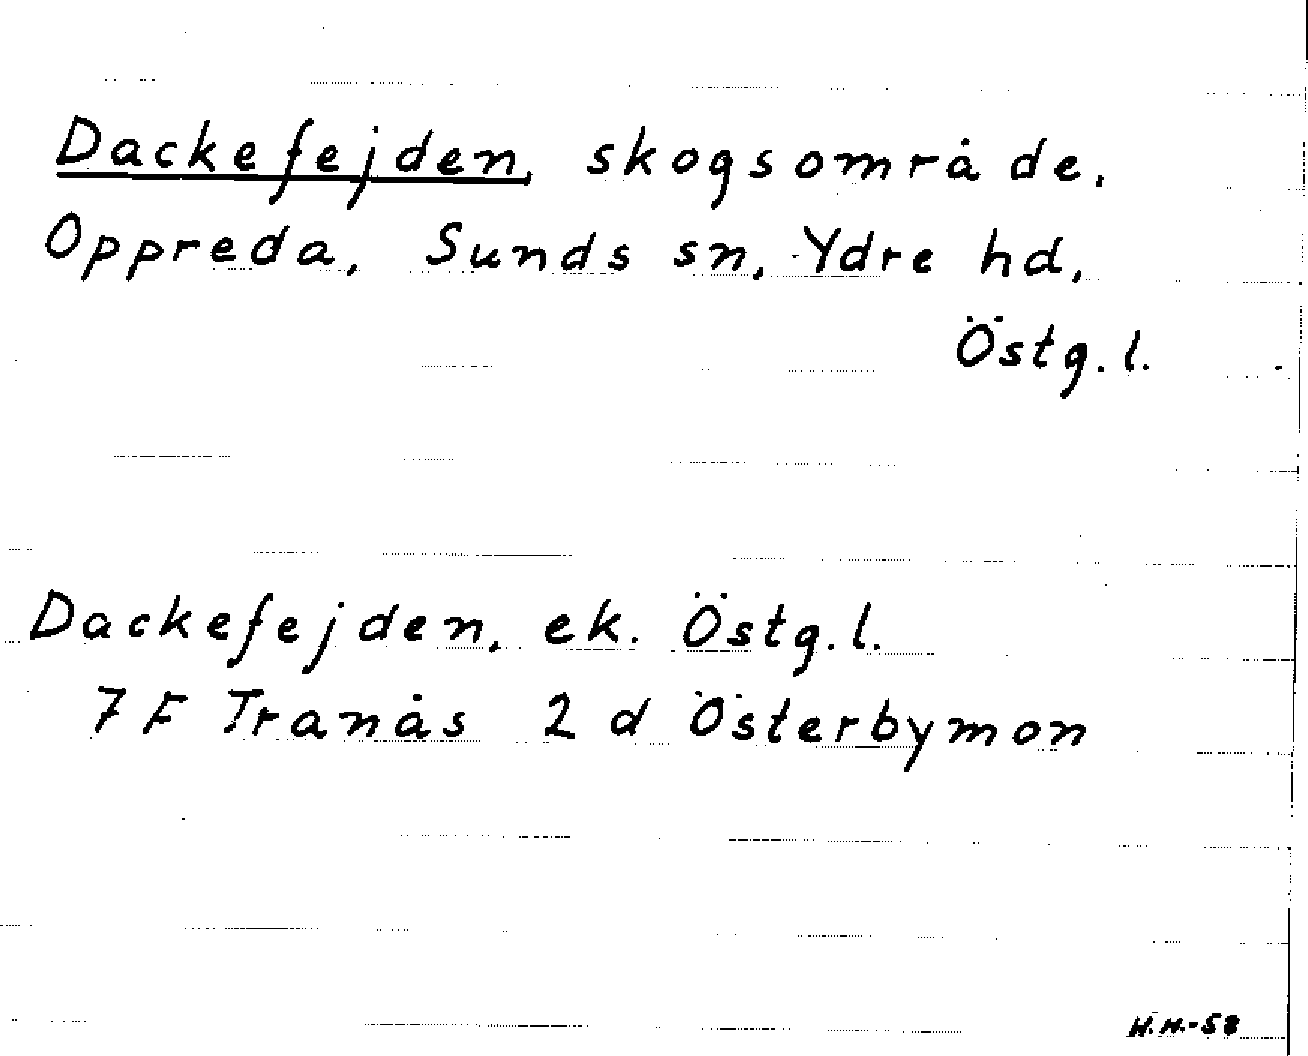 Dackefejden, skogsområde.
Oppreda, Sunds sn, Ydre hd,
Östg. l.
Dackefejden, ek. Östg. l.
7 F Tranås 2 d Österbymon
H.H.-58